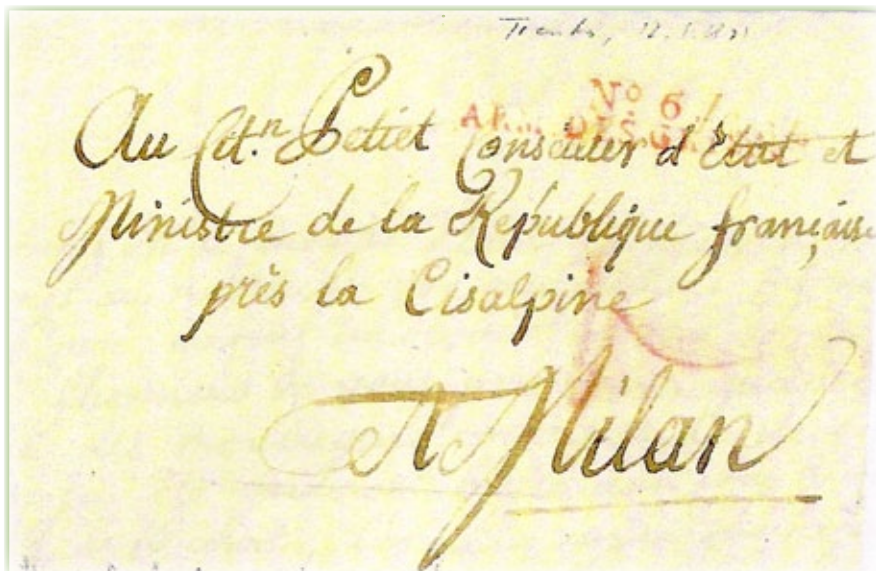 Nº 6
ARM. DES GRISONS
Au Cit.n Petiet Conseiller d'Etat et
Ministre de la République française
près la Cisalpine
A Milan